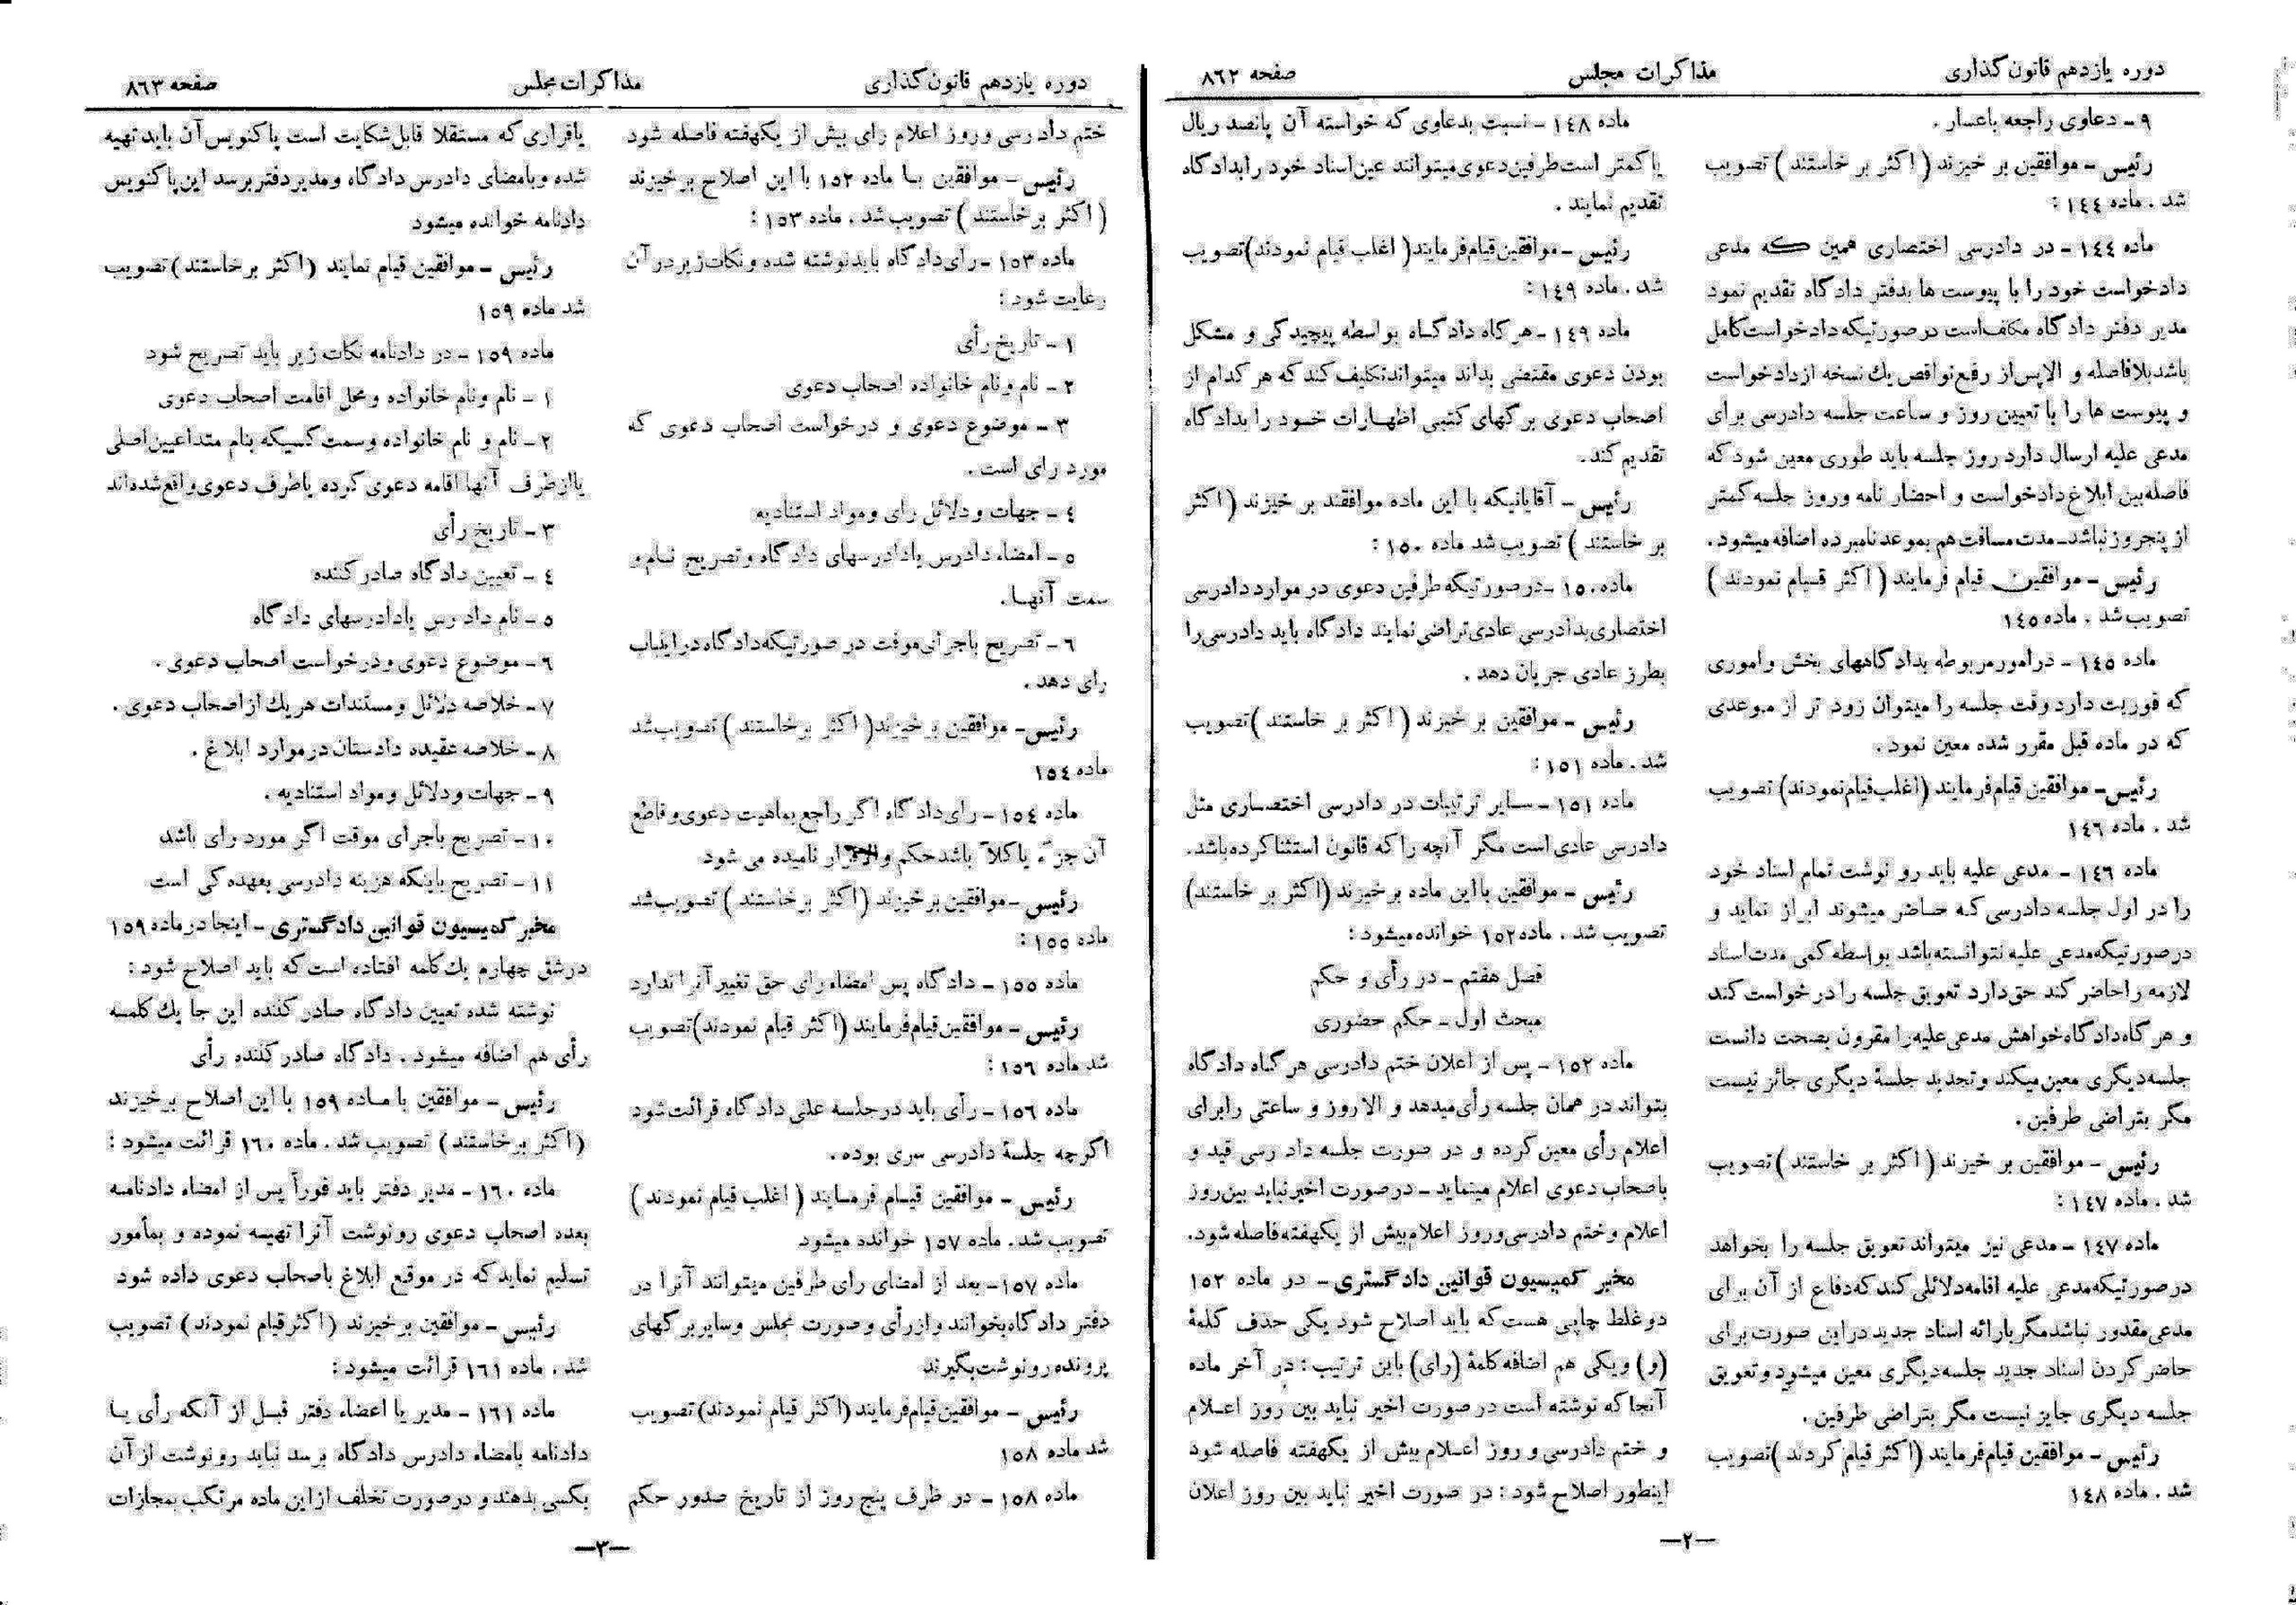 دوره یازدهم قانون‌گذاری
مذاکرات مجلس
صفحه ۸۶۲
۹ - دعاوی راجعه باعسار .
رئیس - موافقین بر خیزند ( اکثر بر خاستند ) تصویب
شد . ماده ۱۴۴ :
ماده ۱۴۴ - در دادرسی اختصاری همین که مدعی
دادخواست خود را با پیوست ها بدفتر دادگاه تقدیم نمود
مدیر دفتر دادگاه مکلف‌است درصورتیکه دادخواست کامل
باشد بلافاصله و الا پس‌از رفع نواقص یك نسخه ازدادخواست
و پیوست ها را با تعیین روز و ساعت جلسه دادرسی برای
مدعی علیه ارسال دارد روز جلسه باید طوری معین شود که
فاصله‌بین ابلاغ دادخواست و احضار نامه وروز جلسه کمتر
از پنجروز نباشد - مدت مسافت هم بموعد نامبرده اضافه میشود.
رئیس - موافقین قیام فرمایند ( اکثر قیام نمودند )
تصویب شد . ماده ۱۴۵
ماده ۱۴۵ - درامورمربوطه بدادگاههای بخش واموری
که فوریت دارد وقت جلسه را میتوان زود تر از موعدی
که در ماده قبل مقرر شده معین نمود .
رئیس - موافقین قیام‌فرمایند (اغلب قیام‌نمودند) تصویب
شد . ماده ۱۴۶
ماده ۱۴۶ - مدعی علیه باید رو نوشت تمام اسناد خود
را در اول جلسه دادرسی که حاضر میشوند ابراز نماید و
درصورتیکه مدعی علیه نتوانسته‌باشد بواسطه کمی مدت اسناد
لازمه راحاضر کند حق‌دارد تعویق جلسه را درخواست کند
و هرگاه دادگاه خواهش مدعی‌علیه‌را مقرون بصحت دانست
جلسه‌دیگری معین‌میکند و تجدید جلسهٔ دیگری جائز نیست
مگر بتراضی طرفین .
رئیس - موافقین بر خیزند ( اکثر بر خاستند ) تصویب
شد . ماده ۱۴۷ :
ماده ۱۴۷ - مدعی نیز میتواند تعویق جلسه را بخواهد
درصورتیکه مدعی علیه اقامه‌دلائلی کند که دفاع از آن برای
مدعی مقدور نباشد مگر بارائه اسناد جدید دراین صورت برای
حاضر کردن اسناد جدید جلسه‌دیگری معین میشود و تعویق
جلسه دیگری جایز نیست مگر بتراضی طرفین .
رئیس - موافقین قیام‌فرمایند (اکثر قیام کردند ) تصویب
شد . ماده ۱۴۸
ماده ۱۴۸ - نسبت بدعاوی که خواسته آن پانصد ریال
یا کمتر است طرفین‌دعوی میتوانند عین‌اسناد خود را بدادگاه
تقدیم نمایند .
رئیس - موافقین قیام‌فرمایند( اغلب قیام نمودند) تصویب
شد . ماده ۱۴۹ :
ماده ۱۴۹ - هرگاه دادگاه بواسطه پیچیدگی و مشکل
بودن دعوی مقتضی بداند میتواند تکلیف کند که هرکدام از
اصحاب دعوی برگهای کتبی اظهارات خود را بدادگاه
تقدیم کند .
رئیس - آقایانیکه با این ماده موافقند بر خیزند ( اکثر
بر خاستند ) تصویب شد ماده ۱۵۰ :
ماده ۱۵۰ - درصورتیکه طرفین دعوی در موارد دادرسی
اختصاری بدادرسی عادی‌تراضی نمایند دادگاه باید دادرسی‌را
بطرز عادی جریان دهد .
رئیس - موافقین بر خیزند ( اکثر بر خاستند ) تصویب
شد . ماده ۱۵۱ :
ماده ۱۵۱ - سایر ترتیبات در دادرسی اختصاری مثل
دادرسی عادی است مگر آنچه را که قانون استثنا کرده باشد.
رئیس - موافقین با این ماده برخیزند (اکثر بر خاستند)
تصویب شد . ماده ۱۵۲ خوانده میشود :
فصل هفتم - در رأی و حکم
مبحث اول - حکم حضوری
ماده ۱۵۲ - پس از اعلان ختم دادرسی هرگاه دادگاه
بتواند در همان جلسه رأی میدهد و الا روز و ساعتی رابرای
اعلام رأی معین کرده و در صورت جلسه داد رسی قید و
باصحاب دعوی اعلام مینماید - درصورت اخیر نباید بین‌روز
اعلام وختم دادرسی وروز اعلام بیش از یکهفته فاصله شود.
مخبر کمیسیون قوانین دادگستری - در ماده ۱۵۲
دو غلط چاپی هست که باید اصلاح شود یکی حذف کلمهٔ
(و) ویکی هم اضافه کلمهٔ (رای) باین ترتیب : در آخر ماده
آنجا که نوشته است درصورت اخیر نباید بین روز اعلام
و ختم دادرسی و روز اعلام بیش از یکهفته فاصله شود
اینطور اصلاح شود : در صورت اخیر نباید بین روز اعلان
—۲—
دوره یازدهم قانون‌گذاری
مذاکرات مجلس
صفحه ۸۶۳
ختم دادرسی وروز اعلام رای بیش از یکهفته فاصله شود
رئیس - موافقین با ماده ۱۵۲ با این اصلاح برخیزند
( اکثر برخاستند ) تصویب شد . ماده ۱۵۳ :
ماده ۱۵۳ - رای‌دادگاه باید نوشته شده و نکات‌زیر در آن
رعایت شود :
۱ - تاریخ رأی
۲ - نام و نام خانواده اصحاب دعوی
۳ - موضوع دعوی و درخواست اصحاب دعوی که
مورد رای است .
۴ - جهات و دلائل رای و مواد استنادیه
۵ - امضاء دادرس یادادرسهای دادگاه و تصریح نام و
سمت آنها .
۶ - تصریح باجرای‌موقت در صورتیکه دادگاه دراینباب
رای دهد .
رئیس - موافقین برخیزند ( اکثر برخاستند ) تصویب شد
ماده ۱۵۴
ماده ۱۵۴ - رای‌دادگاه اگر راجع بماهیت دعوی و قاطع
آن جزءً یا کلاً باشد حکم والا قرار نامیده می شود
رئیس - موافقین برخیزند (اکثر برخاستند ) تصویب شد
ماده ۱۵۵ :
ماده ۱۵۵ - دادگاه پس امضاء رای حق تغییر آنرا ندارد
رئیس - موافقین قیام‌فرمایند (اکثر قیام نمودند) تصویب
شد ماده ۱۵۶ :
ماده ۱۵۶ - رأی باید درجلسه علنی دادگاه قرائت شود
اگرچه جلسهٔ دادرسی سری بوده .
رئیس - موافقین قیام فرمایند ( اغلب قیام نمودند )
تصویب شد . ماده ۱۵۷ خوانده میشود
ماده ۱۵۷ - بعد از امضای رای طرفین میتوانند آنرا در
دفتر دادگاه بخوانند و ازرأی و صورت مجلس وسایر برگهای
پرونده رونوشت بگیرند
رئیس - موافقین قیام‌فرمایند (اکثر قیام نمودند) تصویب
شد ماده ۱۵۸
ماده ۱۵۸ - در ظرف پنج روز از تاریخ صدور حکم
یاقراری که مستقلا قابل شکایت است پاکنویس آن باید تهیه
شده و بامضای دادرس دادگاه و مدیر دفتر برسد این پاکنویس
دادنامه خوانده میشود
رئیس - موافقین قیام نمایند (اکثر برخاستند ) تصویب
شد ماده ۱۵۹
ماده ۱۵۹ - در دادنامه نکات زیر باید تصریح شود
۱ - نام و نام خانواده و محل اقامت اصحاب دعوی
۲ - نام و نام خانواده و سمت کسیکه بنام متداعیین اصلی
یا از طرف آنها اقامه دعوی کرده یاطرف دعوی واقع شده‌اند
۳ - تاریخ رأی
۴ - تعیین دادگاه صادر کننده
۵ - نام دادرس یادادرسهای دادگاه
۶ - موضوع دعوی و درخواست اصحاب دعوی .
۷ - خلاصه دلائل و مستندات هریك ازاصحاب دعوی .
۸ - خلاصه عقیده دادستان درموارد ابلاغ .
۹ - جهات و دلائل و مواد استنادیه .
۱۰ - تصریح باجرای موقت اگر مورد رای باشد
۱۱ - تصریح باینکه هزینه دادرسی بعهده کی است
مخبر کمیسیون قوانین دادگستری - اینجا در ماده ۱۵۹
درشق چهارم یك کلمه افتاده است که باید اصلاح شود :
نوشته شده تعیین دادگاه صادر کننده این جا یك کلمه
رأی هم اضافه میشود . دادگاه صادر کننده رأی
رئیس - موافقین با ماده ۱۵۹ با این اصلاح برخیزند
(اکثر برخاستند) تصویب شد . ماده ۱۶۰ قرائت میشود :
ماده ۱۶۰ - مدیر دفتر باید فوراً پس از امضاء دادنامه
بعده اصحاب دعوی رونوشت آنرا تهیه نموده و بمأمور
تسلیم نماید که در موقع ابلاغ باصحاب دعوی داده شود
رئیس - موافقین برخیزند (اکثر قیام نمودند) تصویب
شد . ماده ۱۶۱ قرائت میشود :
ماده ۱۶۱ - مدیر یا اعضاء دفتر قبل از آنکه رأی یا
دادنامه بامضاء دادرس دادگاه برسد نباید رونوشت از آن
بکسی بدهند و درصورت تخلف ازاین ماده مرتکب بمجازات
—۳—